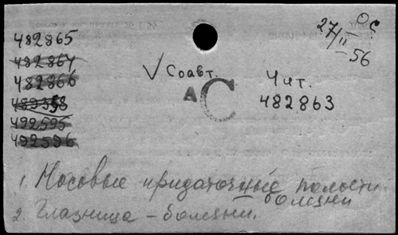 482865
482864
482866
492595
492596
27/II 56
ОС
√ Соавт.
АС
Чит.
482863
1. Носовые придаточные полости - болезни
2. Глазница - болезни.